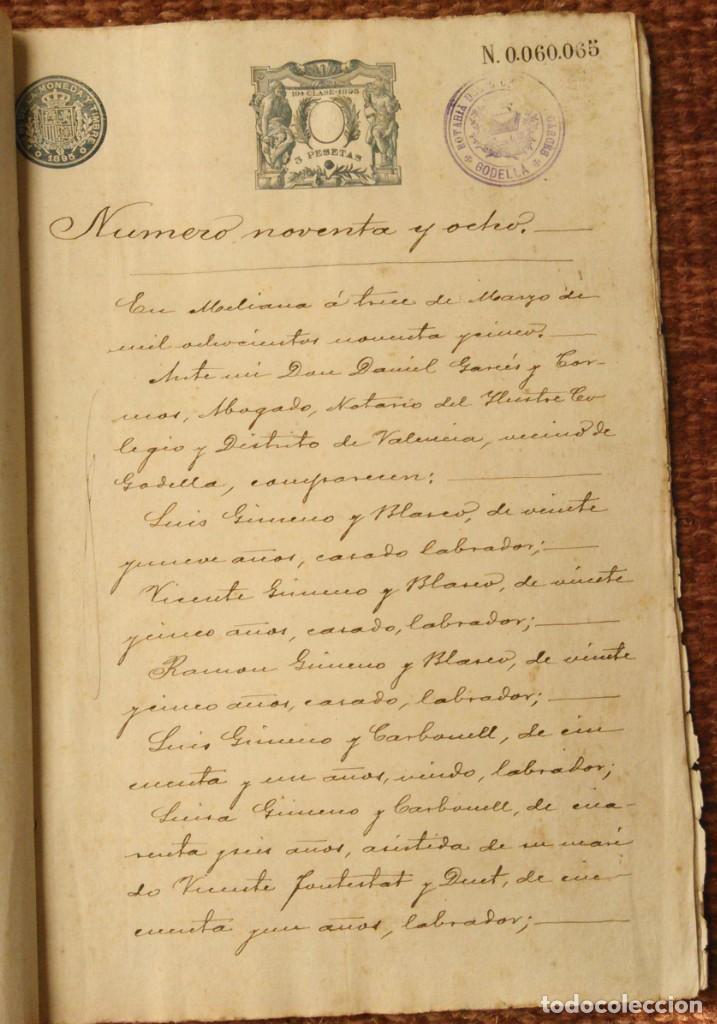 N. 0.060.065
MONEDA Y TIMBRE
1895
10ª CLASE-1895
3 PESETAS
NOTARÍA
GODELLA
Numero noventa y ocho.
En Meliana á trece de Marzo de
mil ochocientos noventa ycinco.
Ante mi Don Daniel Garcés y Tor-
mos, Abogado, Notario del Ilustre Co-
legio y Distrito de Valencia, vecino de
Godella, comparecen:
Luis Gimeno y Blasco, de veinte
ynueve años, casado labrador;
Vicente Gimeno y Blasco, de veinte
ycinco años, casado, labrador;
Ramon Gimeno y Blasco, de veinte
ycinco años, casado, labrador;
Luis Gimeno y Carbonell, de cin
cuenta y un años, viudo, labrador;
Luisa Gimeno y Carbonell, de cua-
renta yseis años, asistida de su mari
do Vicente Fontestat y Duet, de cin-
cuenta yun años, labrador;
todocoleccion